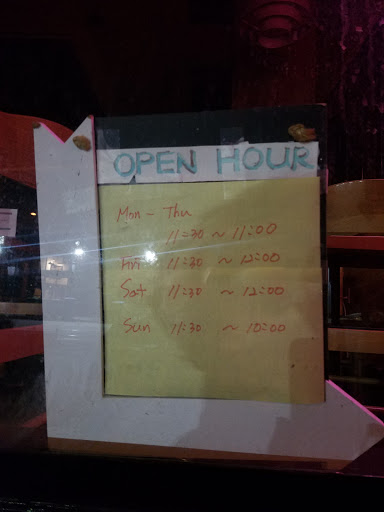 OPEN HOUR
Mon - Thu
11:30 ~ 11:00
Fri 11:30 ~ 12:00
Sat 11:30 ~ 12:00
Sun 11:30 ~ 10:00